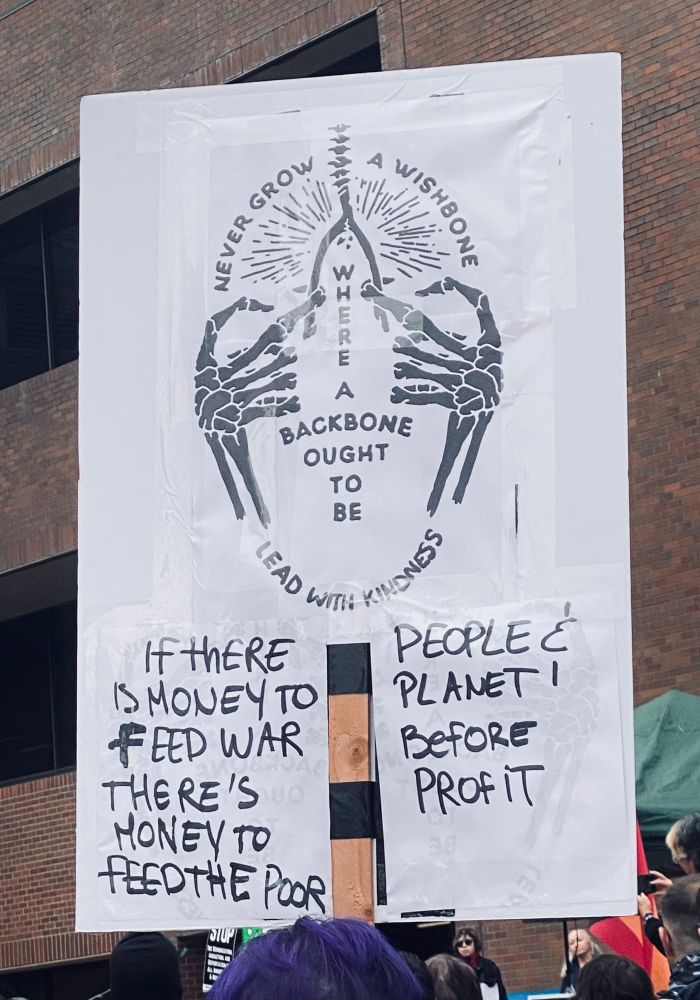 NEVER GROW A WISHBONE
WHERE
A
BACKBONE
OUGHT
TO
BE
LEAD WITH KINDNESS
If thERE
IS MONEY TO
FEED WAR
THERE'S
MONEY TO
FEED THE POOR
PEOPLE &
PLANET!
BEFORE
PROFIT
STOP